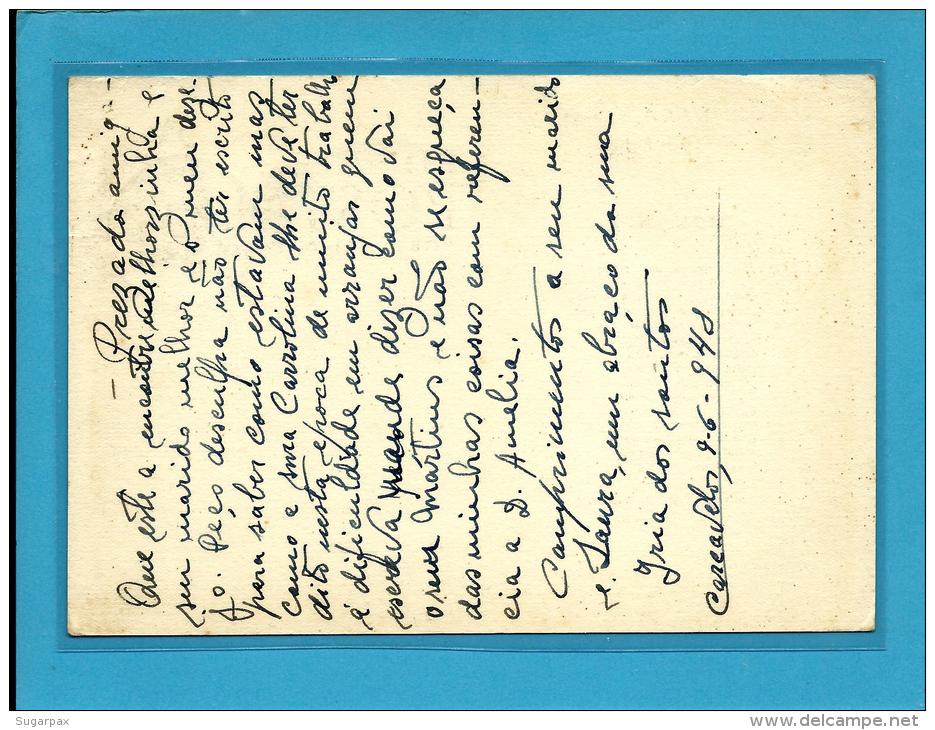 — Prezada amig-
Que esta a encontre melhorzinha e
seu marido melhor é o meu dese-
jo. Peço desculpa não ter escrito
para saber como estavam mas
como a sua Carrolina lhe deva ter
dito nesta época de muito trabalho
é dificuldade em arranjar quem
escreva quando dizer como vai
o seu Mártins e não se esqueça
das minhas coisas com referen-
cia a D. Amelia.
Comprimentos a seu marido
e Laura, um abraço da sua
Iria dos Santos
Carcavelos, 9-6-948
Sugarpax
www.delcampe.net